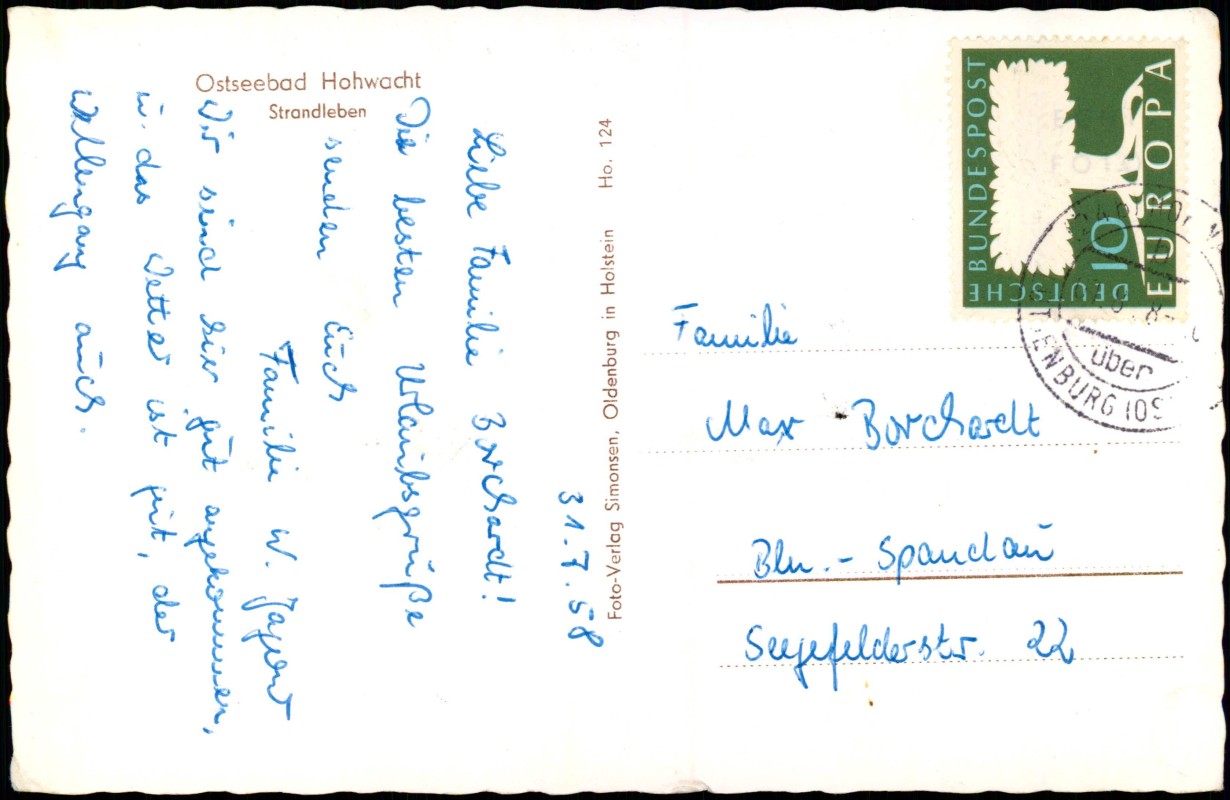 Ostseebad Hohwacht
Strandleben
31.7.58
Liebe Familie Borchardt!
Die besten Urlaubsgrüße
senden Euch
Familie W.
Wir sind hier gut angekommen,
u. das Wetter ist gut, der
Wellengang auch.
Foto-Verlag Simonsen, Oldenburg in Holstein Ho. 124
DEUTSCHE BUNDESPOST
EUROPA
10
über
OLDENBURG
Familie
Max Borchardt
Bln.- Spandau
Seegefelderstr. 22